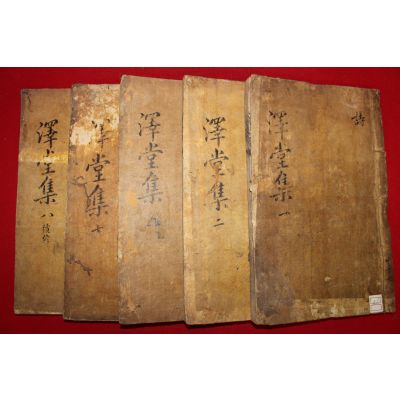 詩
澤堂集 一
澤堂集 二
澤堂集
澤堂集 七
澤堂集 八